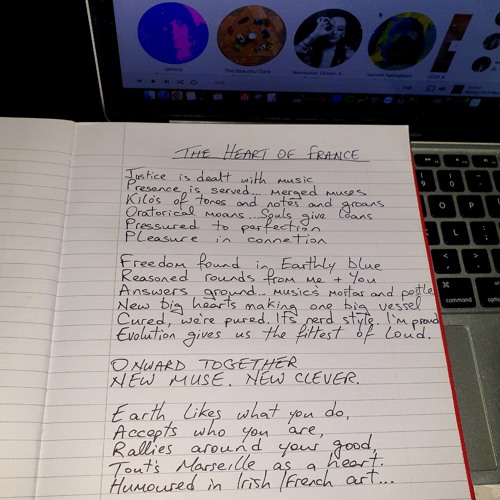 The Beautiful Dark
THE HEART OF FRANCE
Justice is dealt with music
Presence is served... merged muses
Kilo's of tones and notes and groans
Oratorical moans.. Souls give loans
Pressured to perfection
Pleasure in connetion
Freedom found in Earthly blue
Reasoned rounds from me + you
Answers ground.. musics mortas and pestle
New big hearts making one big vessel
Cured, we're pured. It's nerd style. I'm proud
Evolution gives us the fittest of loud.
ONWARD TOGETHER
NEW MUSE. NEW CLEVER.
Earth likes what you do,
Accepts who you are,
Rallies around your good,
Tout's Marseille as a heart.
Humoured in Irish/French art...
9 0
O P
L
command option